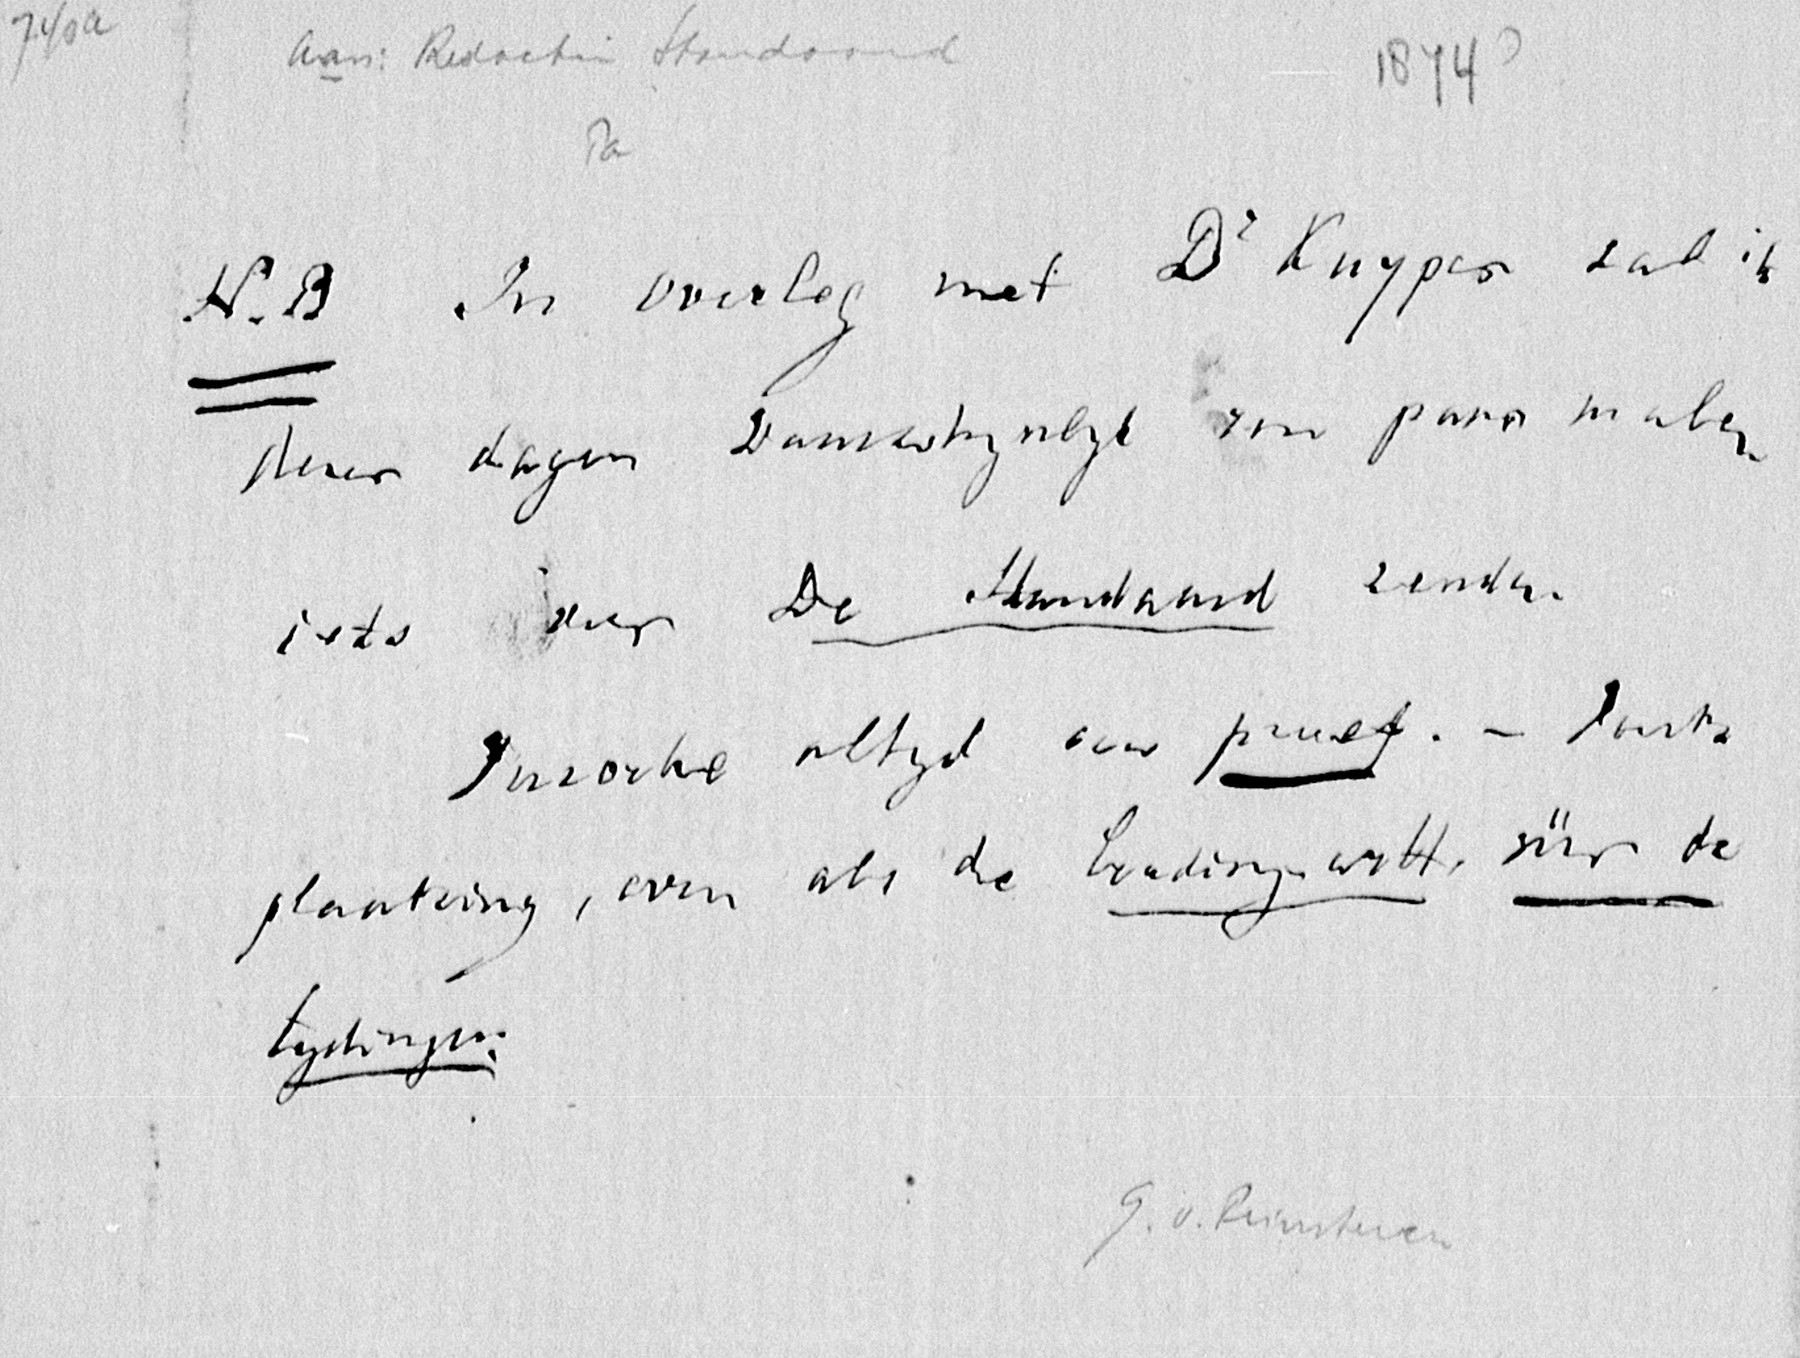 Aan: Redactie Standaard
1874?
N.B In overleg met Dr Kuyper zal ik
dezer dagen waarschynlyk een paar malen
iets voor De Standaard zenden.
Verzoeke altyd een proef. — Juiste
plaatsing, even als de Leading artt. vóór de
tydingen.
G. v. Prinsterer